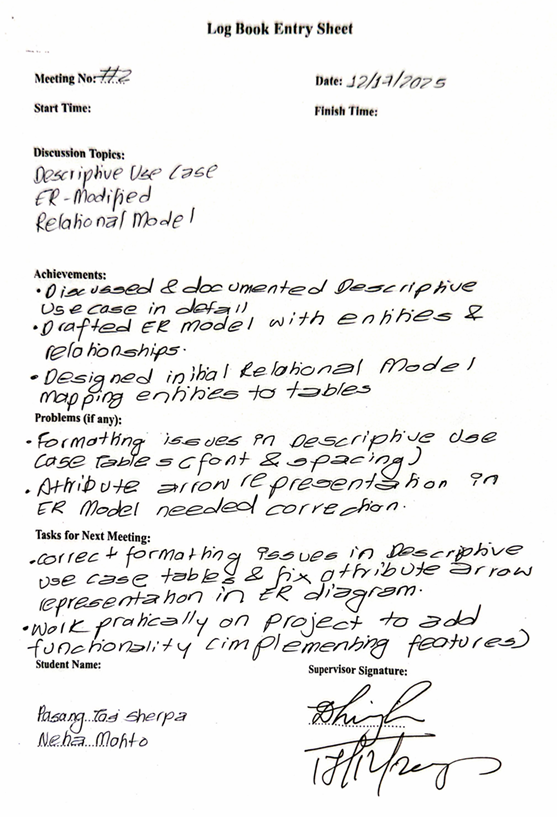 Log Book Entry Sheet
Meeting No: #2
Date: 12/17/2025
Start Time:
Finish Time:
Discussion Topics:
Descriptive Use Case
ER-Modified
Relational Model
Achievements:
• Discussed & documented Descriptive
Use case in detail
• Drafted ER model with entities &
relationships.
• Designed initial Relational Model
mapping entities to tables
Problems (if any):
• Formatting issues in Descriptive Use
Case Tables (font & spacing)
• Attribute arrow representation in
ER Model needed correction.
Tasks for Next Meeting:
• Correct formatting issues in Descriptive
use case tables & fix attribute arrow
representation in ER diagram.
• Work pratically on project to add
functionality (implementing features)
Student Name:
Supervisor Signature:
Pasang Tasi Sherpa
Neha Mahto